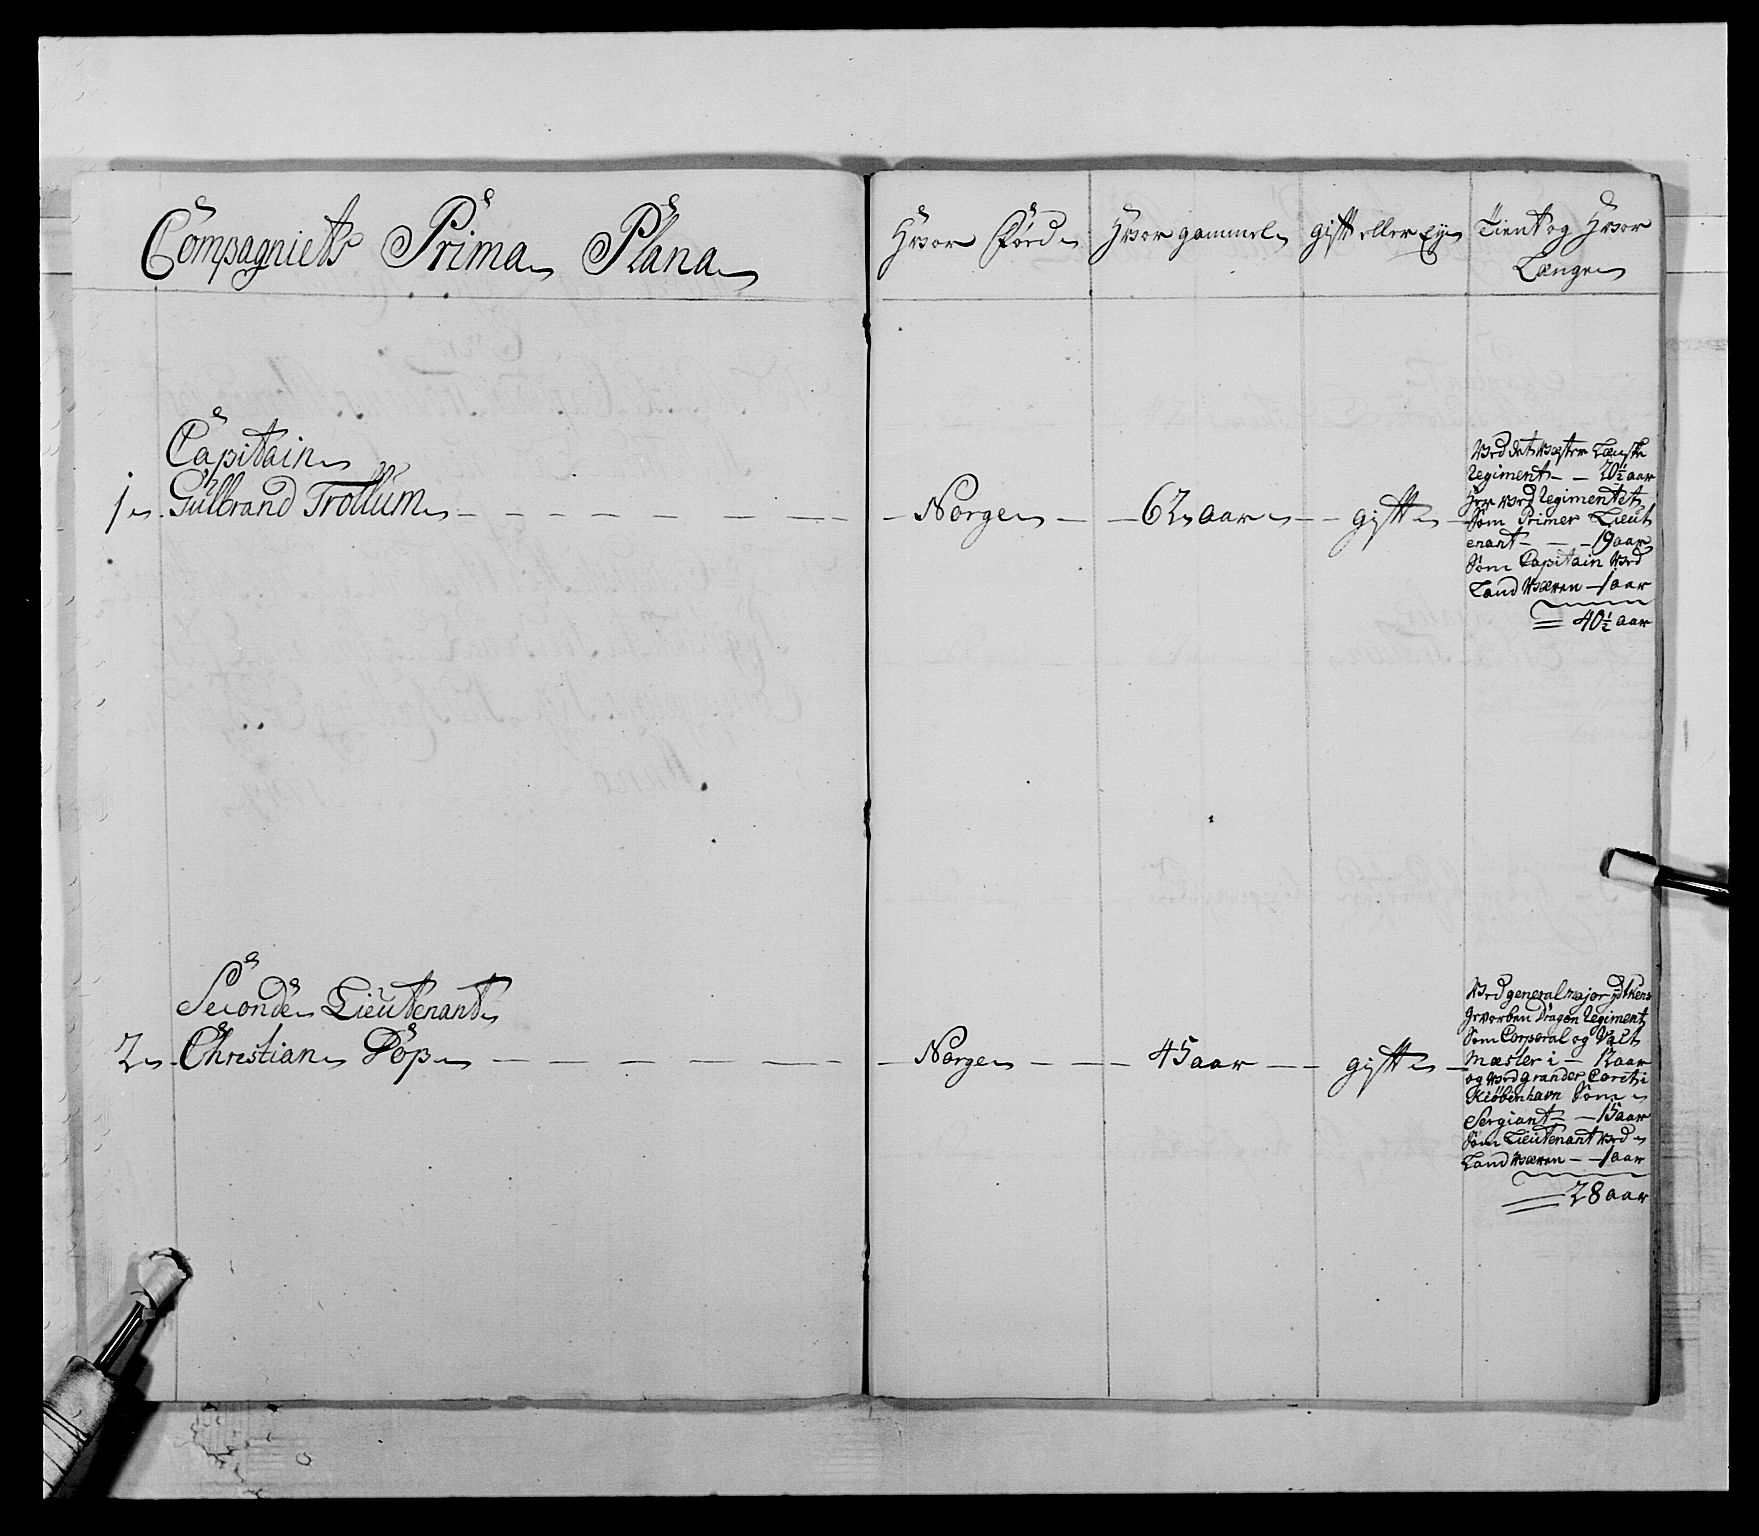 Compagniets Prima Plana
Hvor Föed
Hvor gammel
gift eller Ey
Tient og Hvor
Længe
Capitain
1 Gulbrand Trollum
Norge
62 aar
gift
Ved det Vester Lenske
Regiment 20½ aar
Her ved Regimentet
Som Primer Lieut
enant 19 aar
Som Capitain Ved
Land Væren 1 aar
40½ aar
Seconde Lieutenant
2 Christian Pop
Norge
45 aar
gift
Ved general major
gevorben Dragon Regiment
Som Corporal og Vagt
Mæster i 12 aar
og ved grander Coret i
Kiöbenhavn Som
Sergiant 15 aar
Som Lieutenant ved
Land Væren 1 aar
28 aar